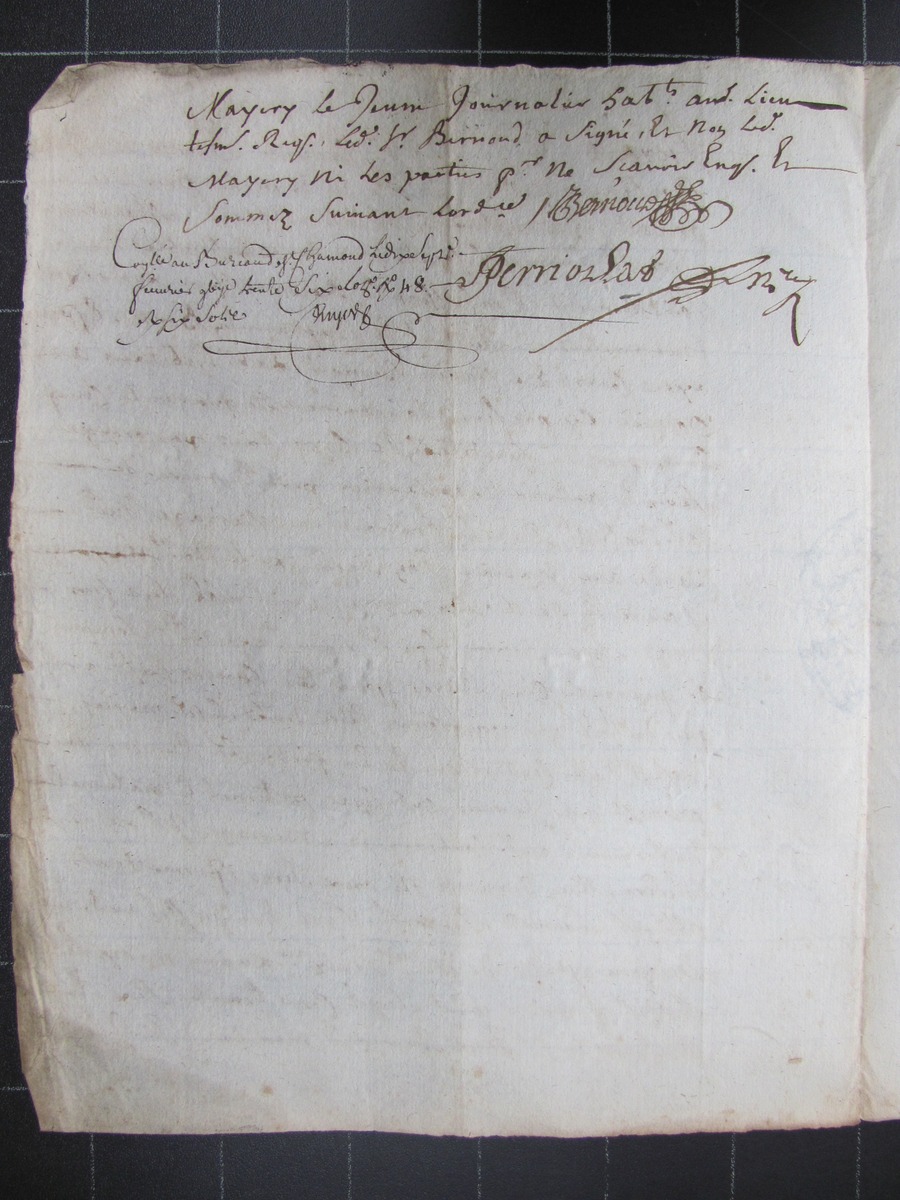 Mayery le Jeune Journalier hab.ts aud. Lieu
tesm. Reqs. Led. Sr. Bernoud a Signé, Et Non led.
Mayery Ni Les parties p.r Ne Scavoir Enqs. Et
Sommez Suivant Lord.ce Bernoud
au Bureaud St Chamond Le dixe sept.
Janvier trente Six 48
Six Sols
Perriollas N.re